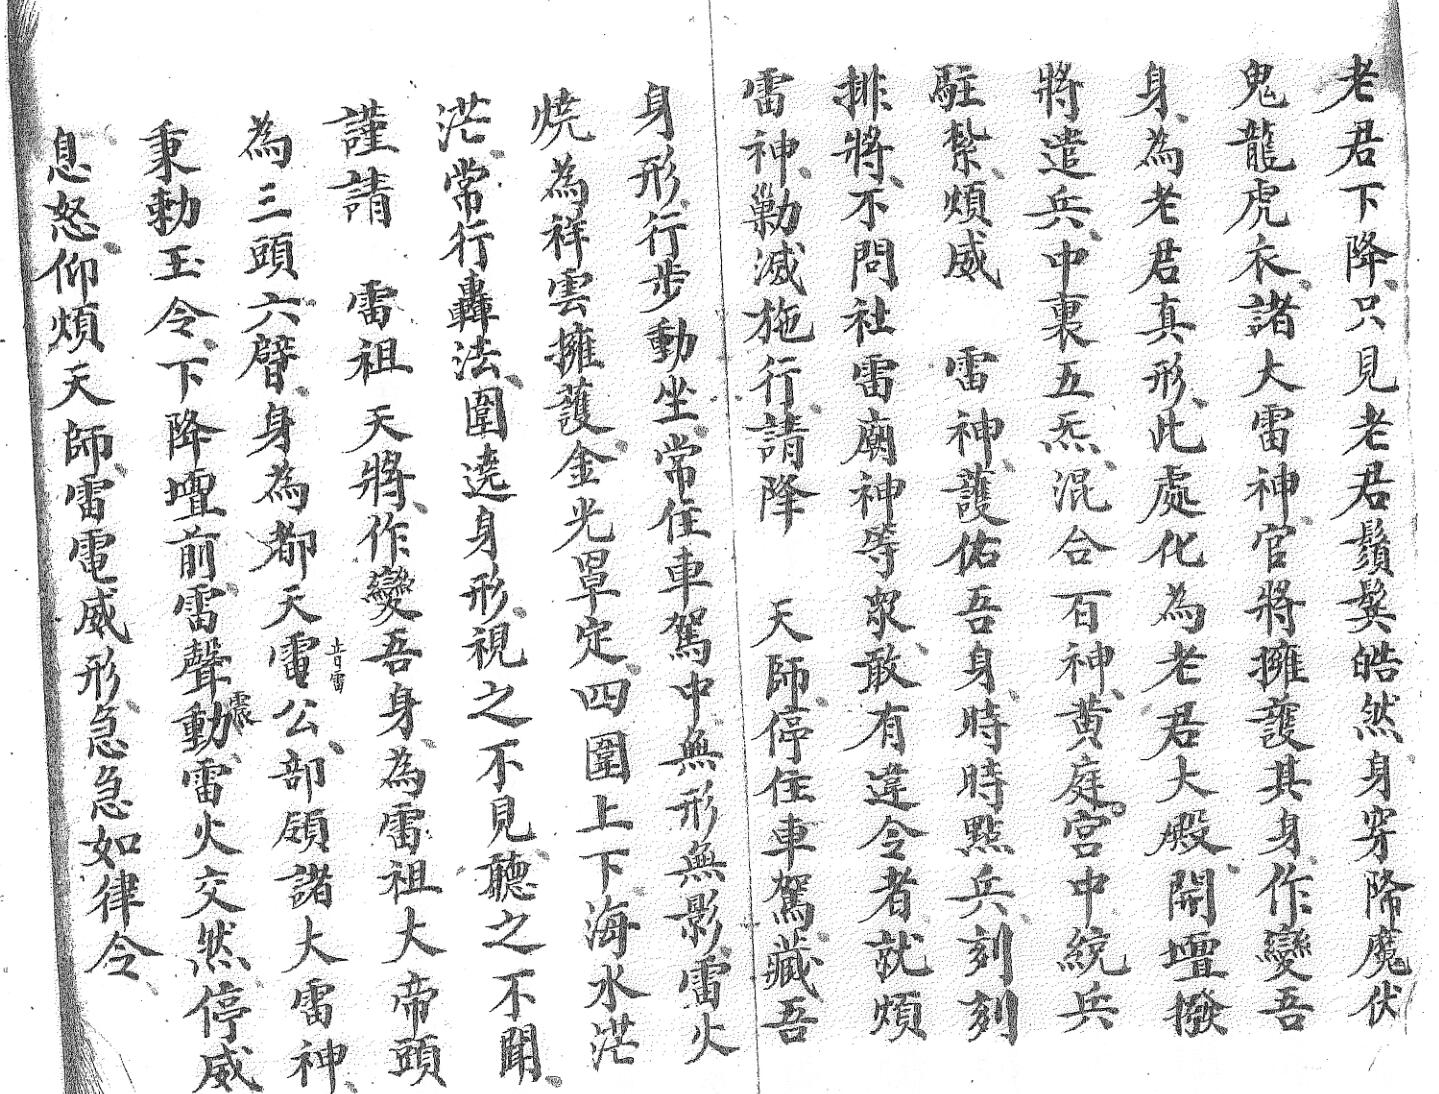 老君下降、只見老君鬚髮皓然、身穿降魔伏
鬼龍虎衣、諸大雷神官將擁護其身、作變吾
身、為老君真形、此處化為老君大殿、開壇撥
將遣兵、中裏五炁、混合百神、黃庭宮中統兵
駐紮、煩威 雷神、護佑吾身、時時點兵、刻刻
排將、不問社雷廟神等眾、敢有違令者就煩
雷神、勦滅施行、請降 天師、停住車駕、藏吾
身形、行步動坐、常住車駕中無形無影、雷火
燒為祥雲擁護、金光罩定、四圍上下海水茫
茫、常行轟法、圍遶身形、視之不見、聽之不聞、
謹請 雷祖 天將、作變吾身、為雷祖大帝頭
為三頭六臂、身為都天雷公、部領諸大雷神、
秉勅玉令、下降壇前、雷聲震動、雷火交然、停威
息怒、仰煩天師、雷電威形、急急如律令、